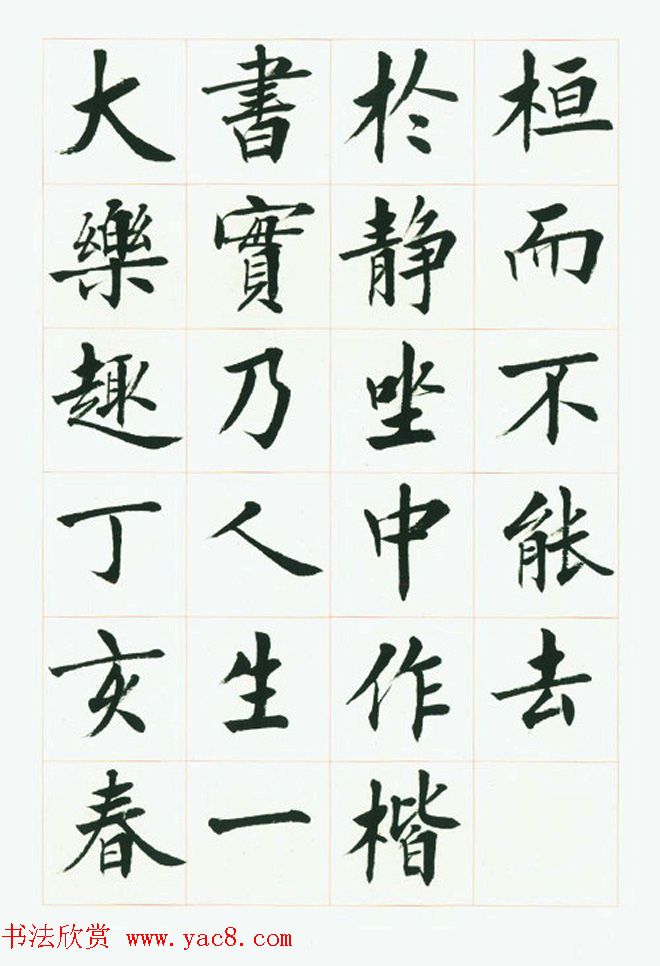 桓而不能去
於静坐中作楷
書實乃人生一
大樂趣丁亥春
书法欣赏 www.yac8.com